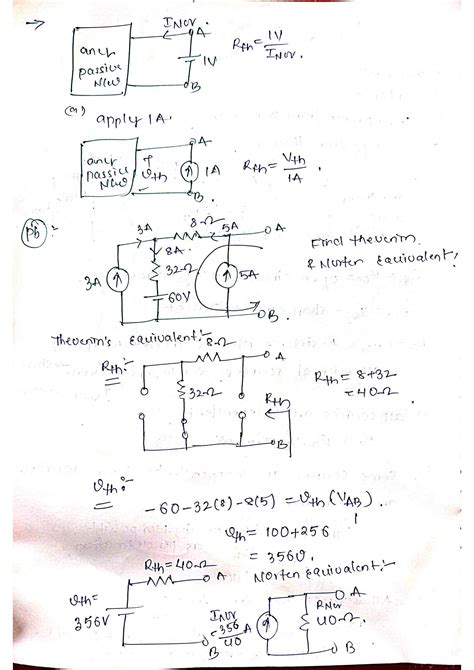 → INor. A
any passive N/w
1V
Rth = 1V / INor.
B
(or) apply 1A.
A
any passive N/w
Vth
1A
Rth = Vth / 1A.
B
Pb:-
3A
8Ω
5A
A
8A
3A
32Ω
5A
60V
B.
Find thevenin & Norten Equivalent:
Thevenin's equivalent:-
8Ω
A
Rth:-
32Ω
Rth
B
Rth = 8+32
= 40Ω
Vth:-
-60-32(8)-8(5) = Vth (VAB).
Vth = 100+256
= 356V.
Rth=40Ω
A
Vth= 356V
B
Norten equivalent:-
INor = -356/40 A
A
RNor
40Ω.
B